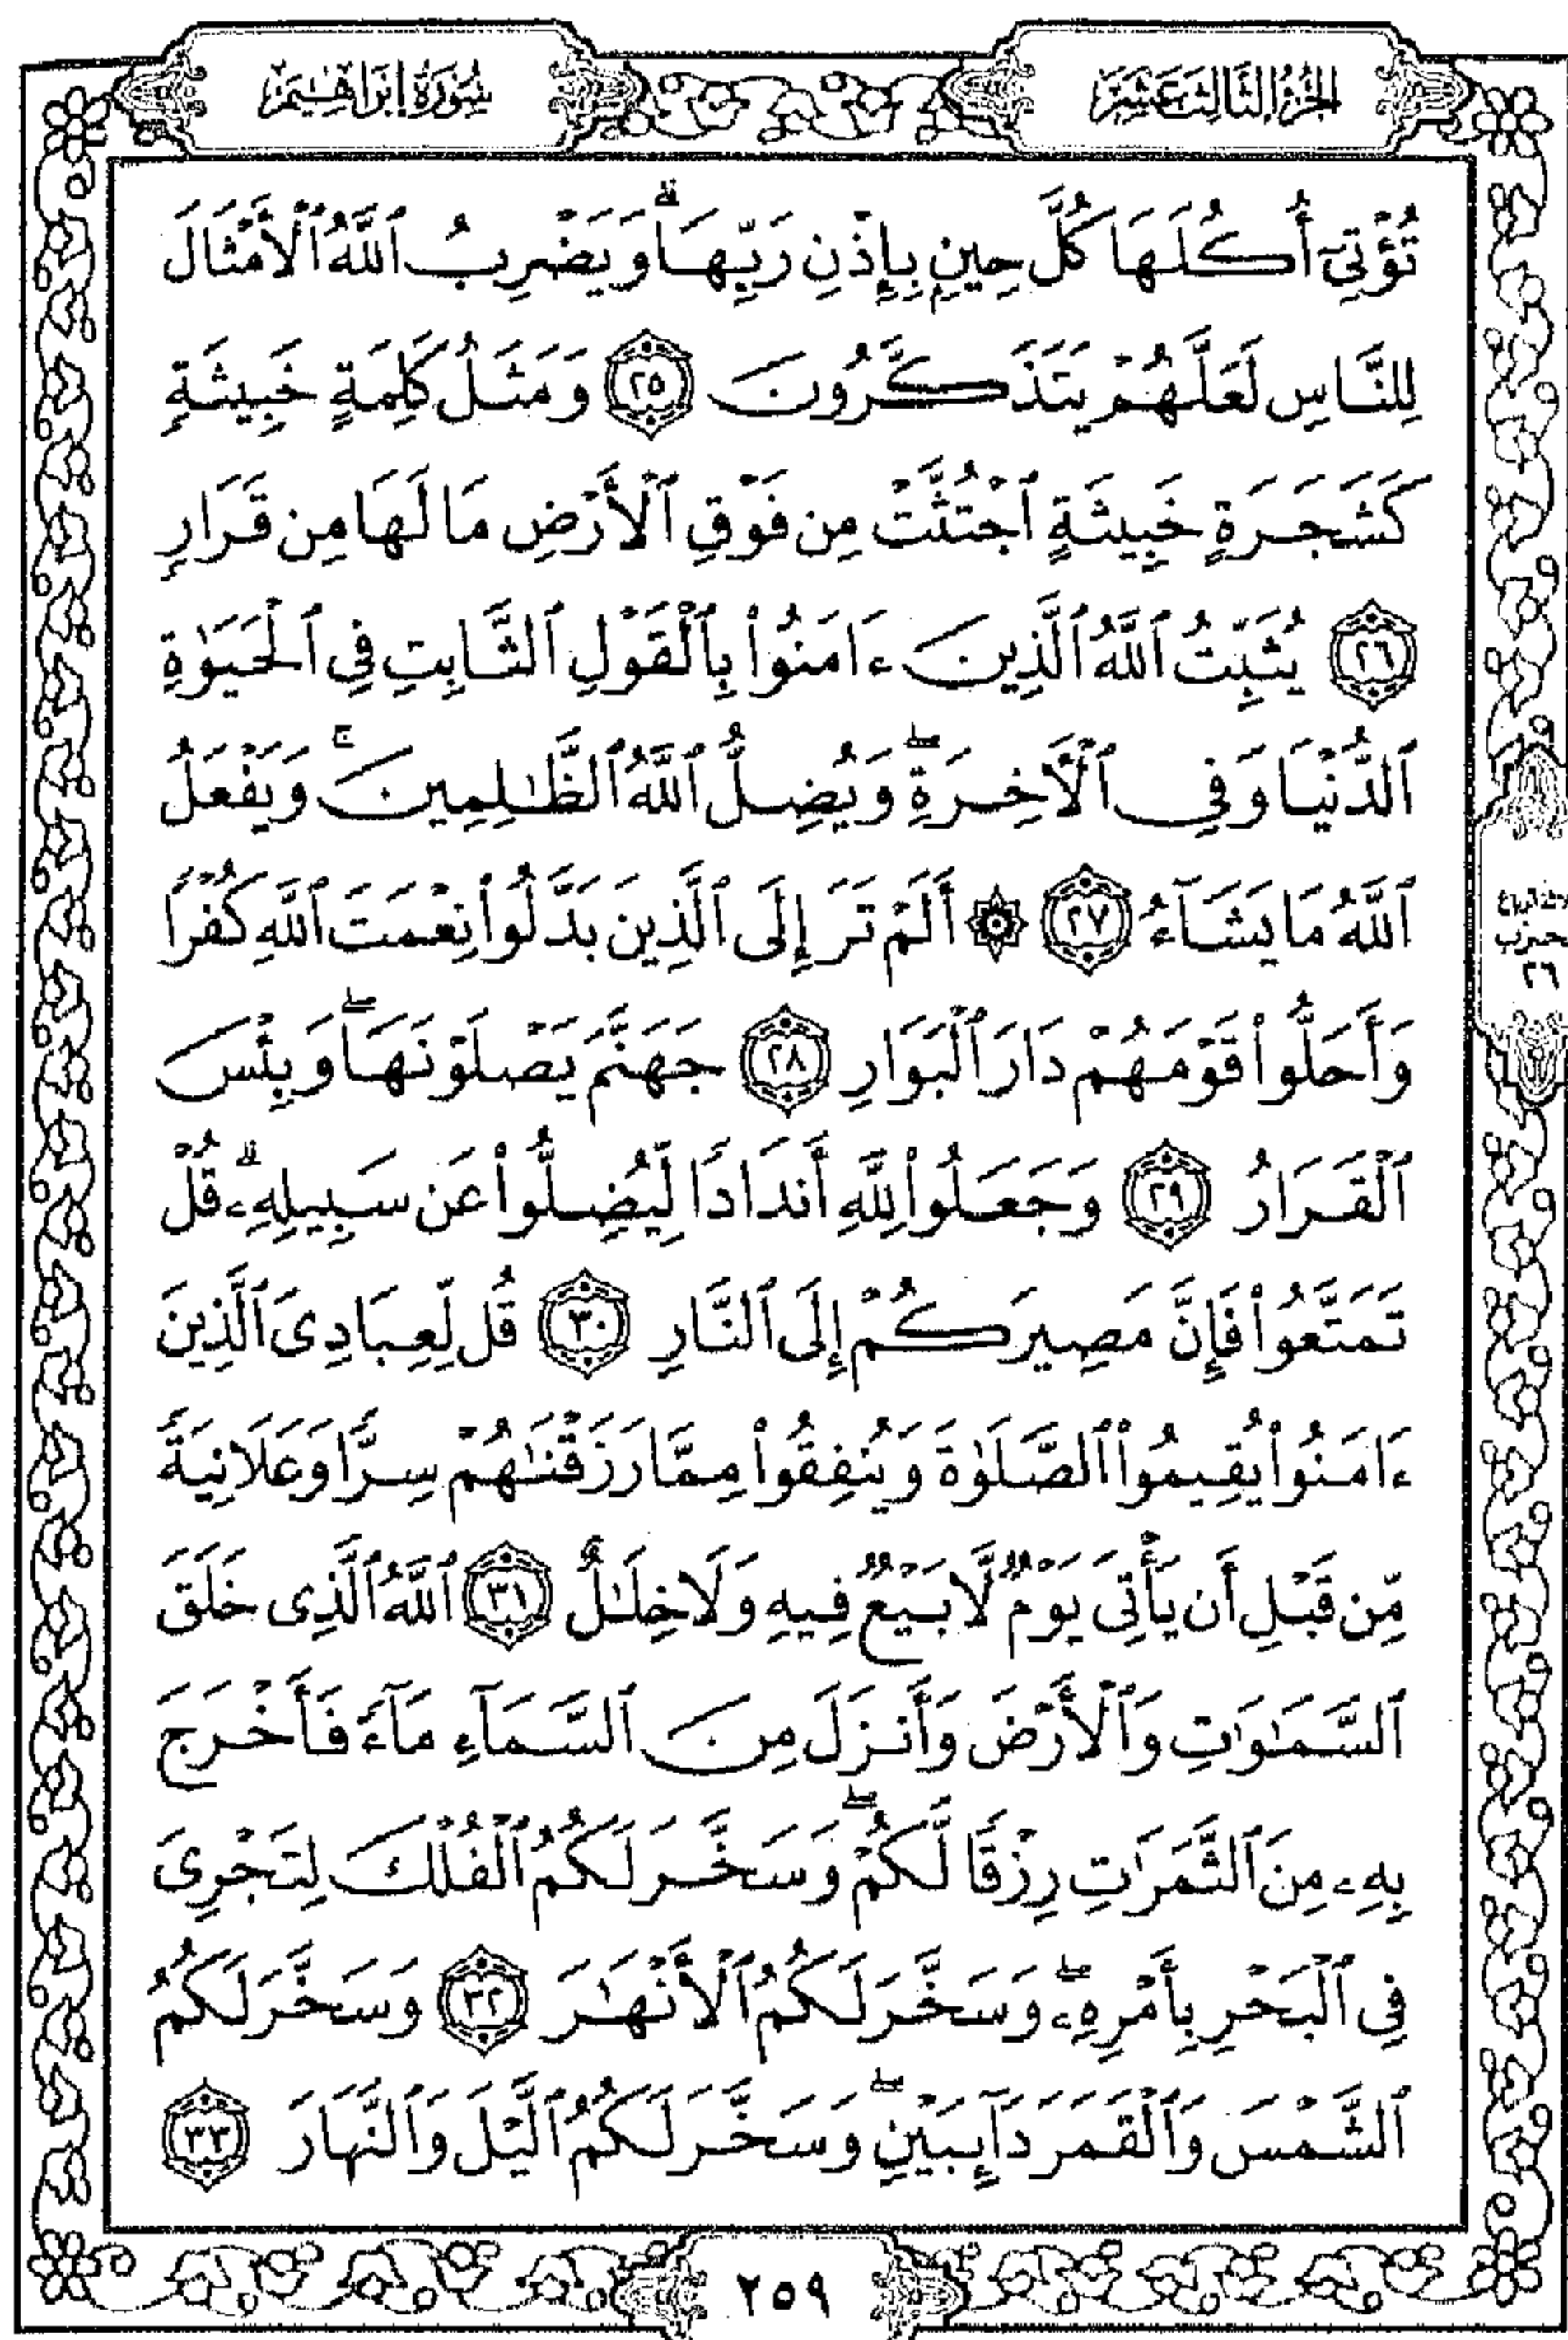 الجزء الثالث عشر
سورة إبراهيم
تُؤْتِىٓ أُكُلَهَا كُلَّ حِينٍۭ بِإِذْنِ رَبِّهَا ۗ وَيَضْرِبُ ٱللَّهُ ٱلْأَمْثَالَ
لِلنَّاسِ لَعَلَّهُمْ يَتَذَكَّرُونَ ٢٥ وَمَثَلُ كَلِمَةٍ خَبِيثَةٍ
كَشَجَرَةٍ خَبِيثَةٍ ٱجْتُثَّتْ مِن فَوْقِ ٱلْأَرْضِ مَا لَهَا مِن قَرَارٍ
٢٦ يُثَبِّتُ ٱللَّهُ ٱلَّذِينَ ءَامَنُوا۟ بِٱلْقَوْلِ ٱلثَّابِتِ فِى ٱلْحَيَوٰةِ
ٱلدُّنْيَا وَفِى ٱلْأَخِرَةِ ۖ وَيُضِلُّ ٱللَّهُ ٱلظَّٰلِمِينَ ۚ وَيَفْعَلُ
ٱللَّهُ مَا يَشَآءُ ٢٧ ۞ أَلَمْ تَرَ إِلَى ٱلَّذِينَ بَدَّلُوا۟ نِعْمَتَ ٱللَّهِ كُفْرًا
وَأَحَلُّوا۟ قَوْمَهُمْ دَارَ ٱلْبَوَارِ ٢٨ جَهَنَّمَ يَصْلَوْنَهَا ۖ وَبِئْسَ
ٱلْقَرَارُ ٢٩ وَجَعَلُوا۟ لِلَّهِ أَندَادًا لِّيُضِلُّوا۟ عَن سَبِيلِهِۦ ۗ قُلْ
تَمَتَّعُوا۟ فَإِنَّ مَصِيرَكُمْ إِلَى ٱلنَّارِ ٣٠ قُل لِّعِبَادِىَ ٱلَّذِينَ
ءَامَنُوا۟ يُقِيمُوا۟ ٱلصَّلَوٰةَ وَيُنفِقُوا۟ مِمَّا رَزَقْنَٰهُمْ سِرًّا وَعَلَانِيَةً
مِّن قَبْلِ أَن يَأْتِىَ يَوْمٌ لَّا بَيْعٌ فِيهِ وَلَا خِلَٰلٌ ٣١ ٱللَّهُ ٱلَّذِى خَلَقَ
ٱلسَّمَٰوَٰتِ وَٱلْأَرْضَ وَأَنزَلَ مِنَ ٱلسَّمَآءِ مَآءً فَأَخْرَجَ
بِهِۦ مِنَ ٱلثَّمَرَٰتِ رِزْقًا لَّكُمْ ۖ وَسَخَّرَ لَكُمُ ٱلْفُلْكَ لِتَجْرِىَ
فِى ٱلْبَحْرِ بِأَمْرِهِۦ ۖ وَسَخَّرَ لَكُمُ ٱلْأَنْهَٰرَ ٣٢ وَسَخَّرَ لَكُمُ
ٱلشَّمْسَ وَٱلْقَمَرَ دَآئِبَيْنِ ۖ وَسَخَّرَ لَكُمُ ٱلَّيْلَ وَٱلنَّهَارَ ٣٣
٢٦
٢٥٩